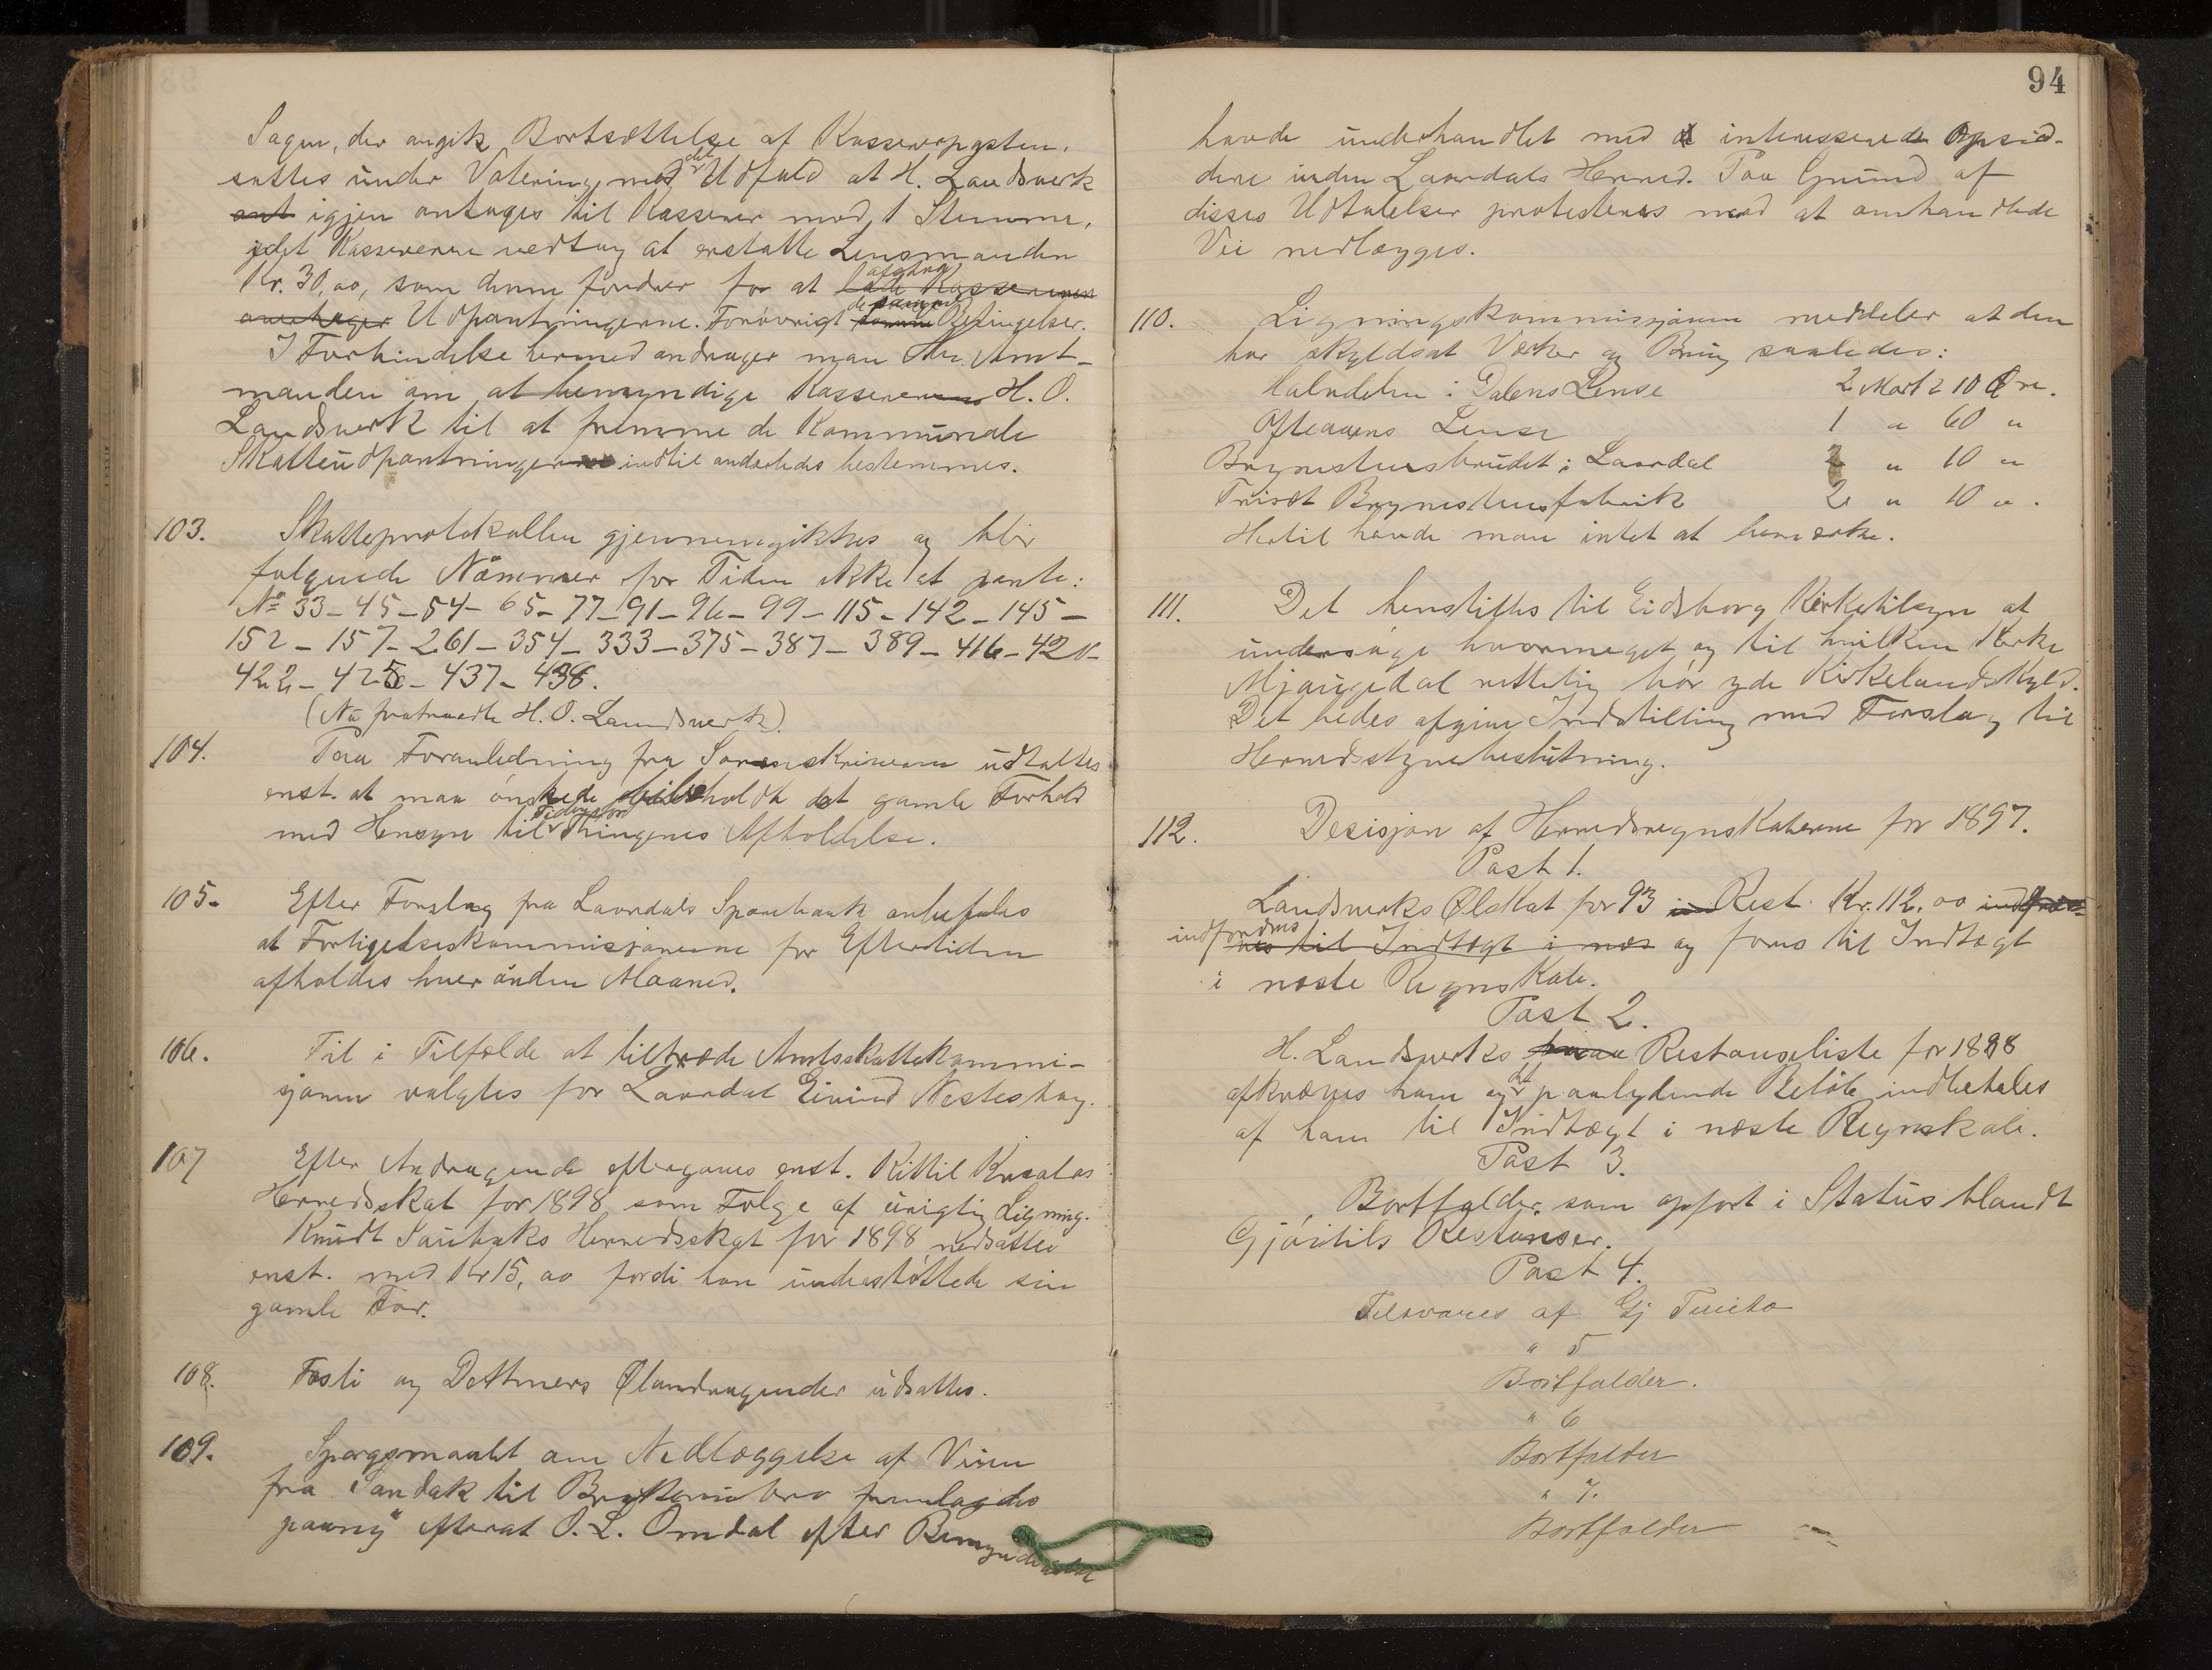 Sagen, der angik Bortsættelse af Kassererposten,
sattes under Votering med det Udfald at H. Landsverk
ant igjen antages til Kasserer mod 1 Stemme,
idet Kassereren vedtog at erstatte Lensmanden
Kr. 30,00, som denne fordrer for at lade Kassereren afgive
overtager Udpantningerne. Forøvrigt samme de samme Betingelser.
I Forbindelse hermed andrager man Hr. Amt-
manden om at bemyndige Kassereren H. O.
Landsverk til at fremme de Kommunale
Skatteudpantninger indtil anderledes bestemmes.
103. Skatteprotokollen gjennemgikkes og blir
følgende Nummer for Tiden ikke at pante:
No 33 - 45 - 54 - 65 - 77 - 91 - 96 - 99 - 115 - 142 - 145 -
152 - 157 - 261 - 354 - 333 - 375 - 387 - 389 - 416 - 420 -
422 - 425 - 437 - 438.
(Nu fratraadte H. O. Landsverk).
104. Paa Foranledning fra Sorenskriveren udtaltes
enst. at man ønskede bibeholdt det gamle Forhold
med Hensyn til Tiden for Thingenes Afholdelse.
105. Efter Forslag fra Laurdals Sparebank anbefales
at Forligelseskommisjonerne for Eftertiden
afholdes hver anden Maaned.
106. Til i Tilfælde at tiltræde Amtsskattekommi-
sjonen valgtes for Laurdal Eivind Nesteshog.
107 Efter Andragende eftergaves enst. Kittil
Herredsskat for 1898 som Følge af urigtig Ligning.
Knudt Saubaks Herredsskat for 1898 nedsattes
enst. med Kr 15,00 fordi han understøttede sin
gamle Far.
108. Fosli og Dettmers Ølandragender udsattes.
109. Spørgsmaalet om Nedlæggelse af Veien
fra Sandak til fremlagdes
paany efterat O. L. Omdal efter Bemyndigelse
94
havde underhandlet med interesserede Opsid-
dere inden Laurdals Herred. Paa Grund af
disses Udtalelser protesteres mod at omhandlede
Vei nedlægges.
110. Ligningskommissjonen meddeler at den
har skyldsat Værker og Brug saaledes:
Halvdelen i Dalens Lense 2 Mark 10 Øre.
Ofteaaens Lense 1 " 60 "
Brynestensbrudet i Laurdal 2 " 10 "
Triset Brynestensfabrik 2 " 10 ".
Hertil havde man intet at bemærke.
111. Det henstilles til Eidsborg Kirketilsyn at
undersøge hvormeget og til hvilken Kirke
Mjaugedal rettelig bør yde Kirkelandskyld.
Det bedes afgive Indstilling med Forslag til
Herredsstyrebeslutning.
112. Desisjon af Herredsregnskaberne for 1897.
Post 1.
Landsverks Ølskat for 93 in Rest Kr. 112,00 indfor-
indfordres nes til Indtægt i næs og føres til Indtægt
i næste Regnskab.
Post 2.
H. Landsverks Restanseliste for 1898
afkræves ham og det paalydende Beløb indbetales
af ham til Indtægt i næste Regnskab.
Post 3.
Bortfalder som opført i Status blandt
Gjøitils Restanser.
Post 4.
Tilsvares af Gj Tveito
" 5
Bortfalder.
" 6
Bortfalder
" 7.
Bortfalder